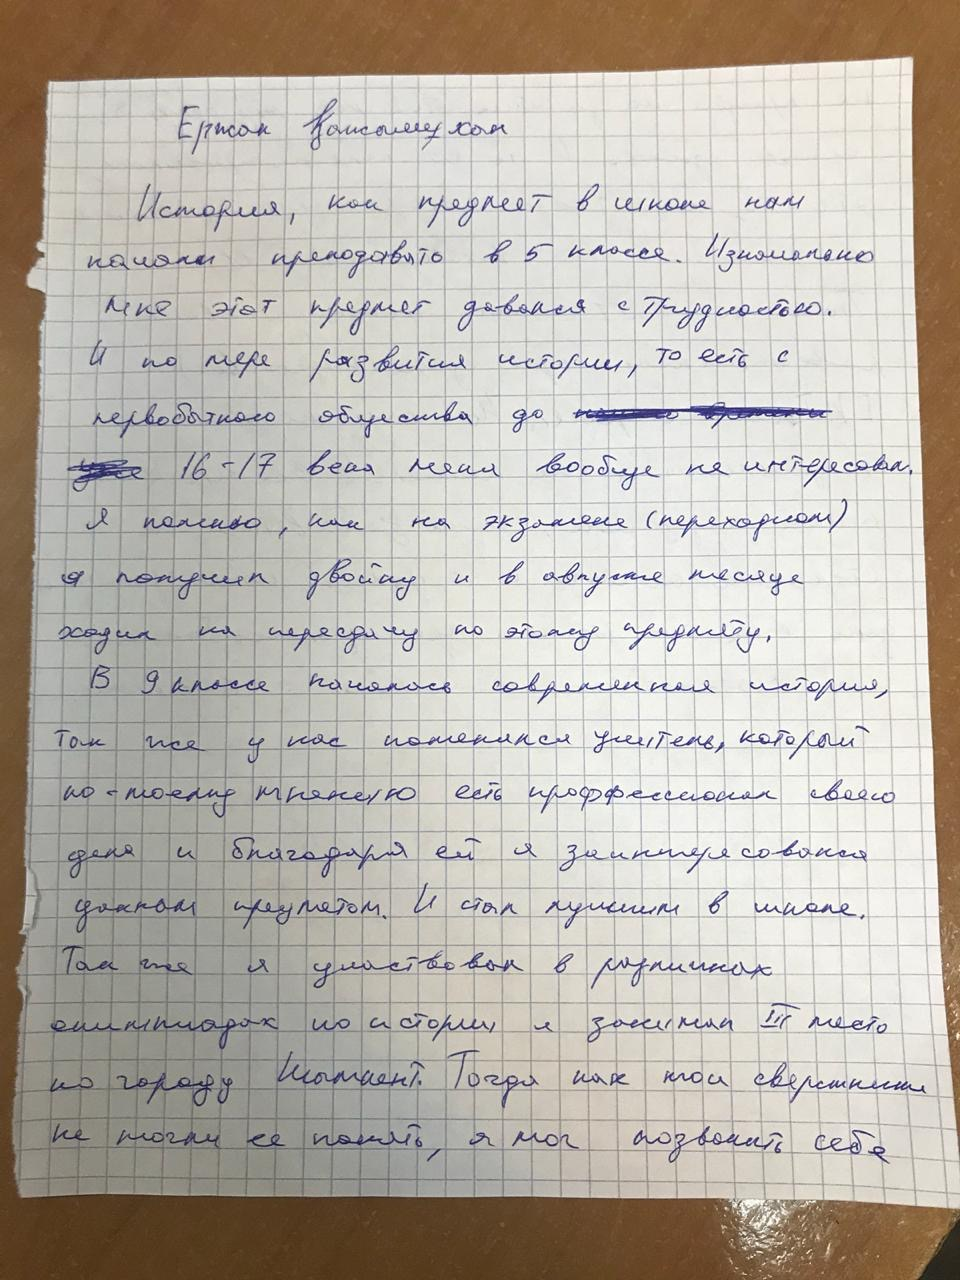 Ержан
История, как предмет в школе нам
начали преподавать в 5 классе. Изначально
мне этот предмет давался с трудностью.
И по мере развития истории, то есть с
первобытного общества до
16-17 века меня вообще не интересовал.
Я помню, как на экзамене (переходном)
я получил двойку и в августе месяце
ходил на пересдачу по этому предмету.
В 9 классе началась современная история,
так же у нас поменялся учитель, который
по-моему мнению есть проффессионал своего
дела и благодаря ей я заинтересовался
данным предметом. И стал лучшим в школе.
Так же я участвовал в различных
олимпиадах по истории и занимал III место
по городу Шымкент. Тогда как мои сверстники
не могли ее понять, я мог позволить себе